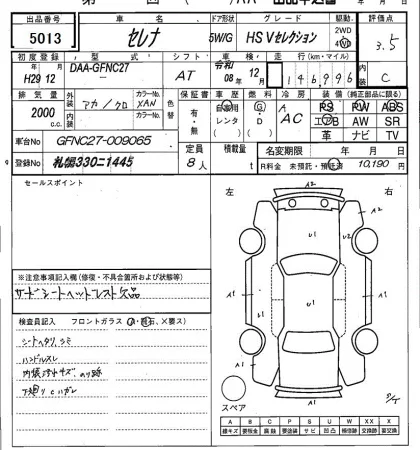 出品番号 車名 ドア形状 グレード 駆動 評価点
5013 セレナ 5W/G HS Vセレクション 2WD 4WD 3.5
初度登録 型式 シフト 車検 走行(km・マイル) 内装
H29 12 DAA-GFNC27 AT 令和 08年 12月 146,996 C
排気量 外装 カラーNo. 色替 保証書 車歴 燃料 冷房 装備(純正部品に限る)
2000 cc アカ/クロ XAN 有・無 自家用 レンタ G・D AC PS PW ABS
内装 カラーNo. エアB AW SR
革 ナビ TV
車台No GFNC27-009065 定員 積載量 名変期限 年 月 日
登録No 札幌330ニ1445 8人 t R料金 未預託・預託済 10,190 円
セールスポイント 左 右
A2
A2
U1
U2
A1
A1
A1
A1
※注意事項記入欄(修復・不具合箇所および状態等)
サードシートヘッドレスト欠品
検査員記入 フロントガラス(A・飛石、×要ス)
シートヘタリ、シミ
ハンドルスレ
下廻りCハガレ
スペア
A B C P S U W X XX X